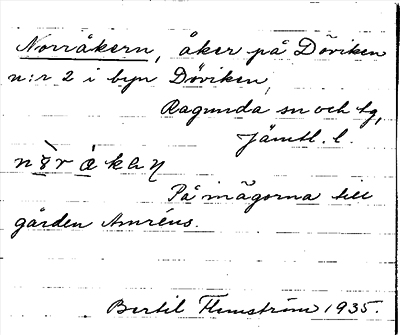 Norråkern, åker på Döviken
n:r 2 i byn Döviken,
Ragunda sn och tg,
Jämtl. l.
På inägorna till
gården Amréns.
Bertil Flemström 1935.